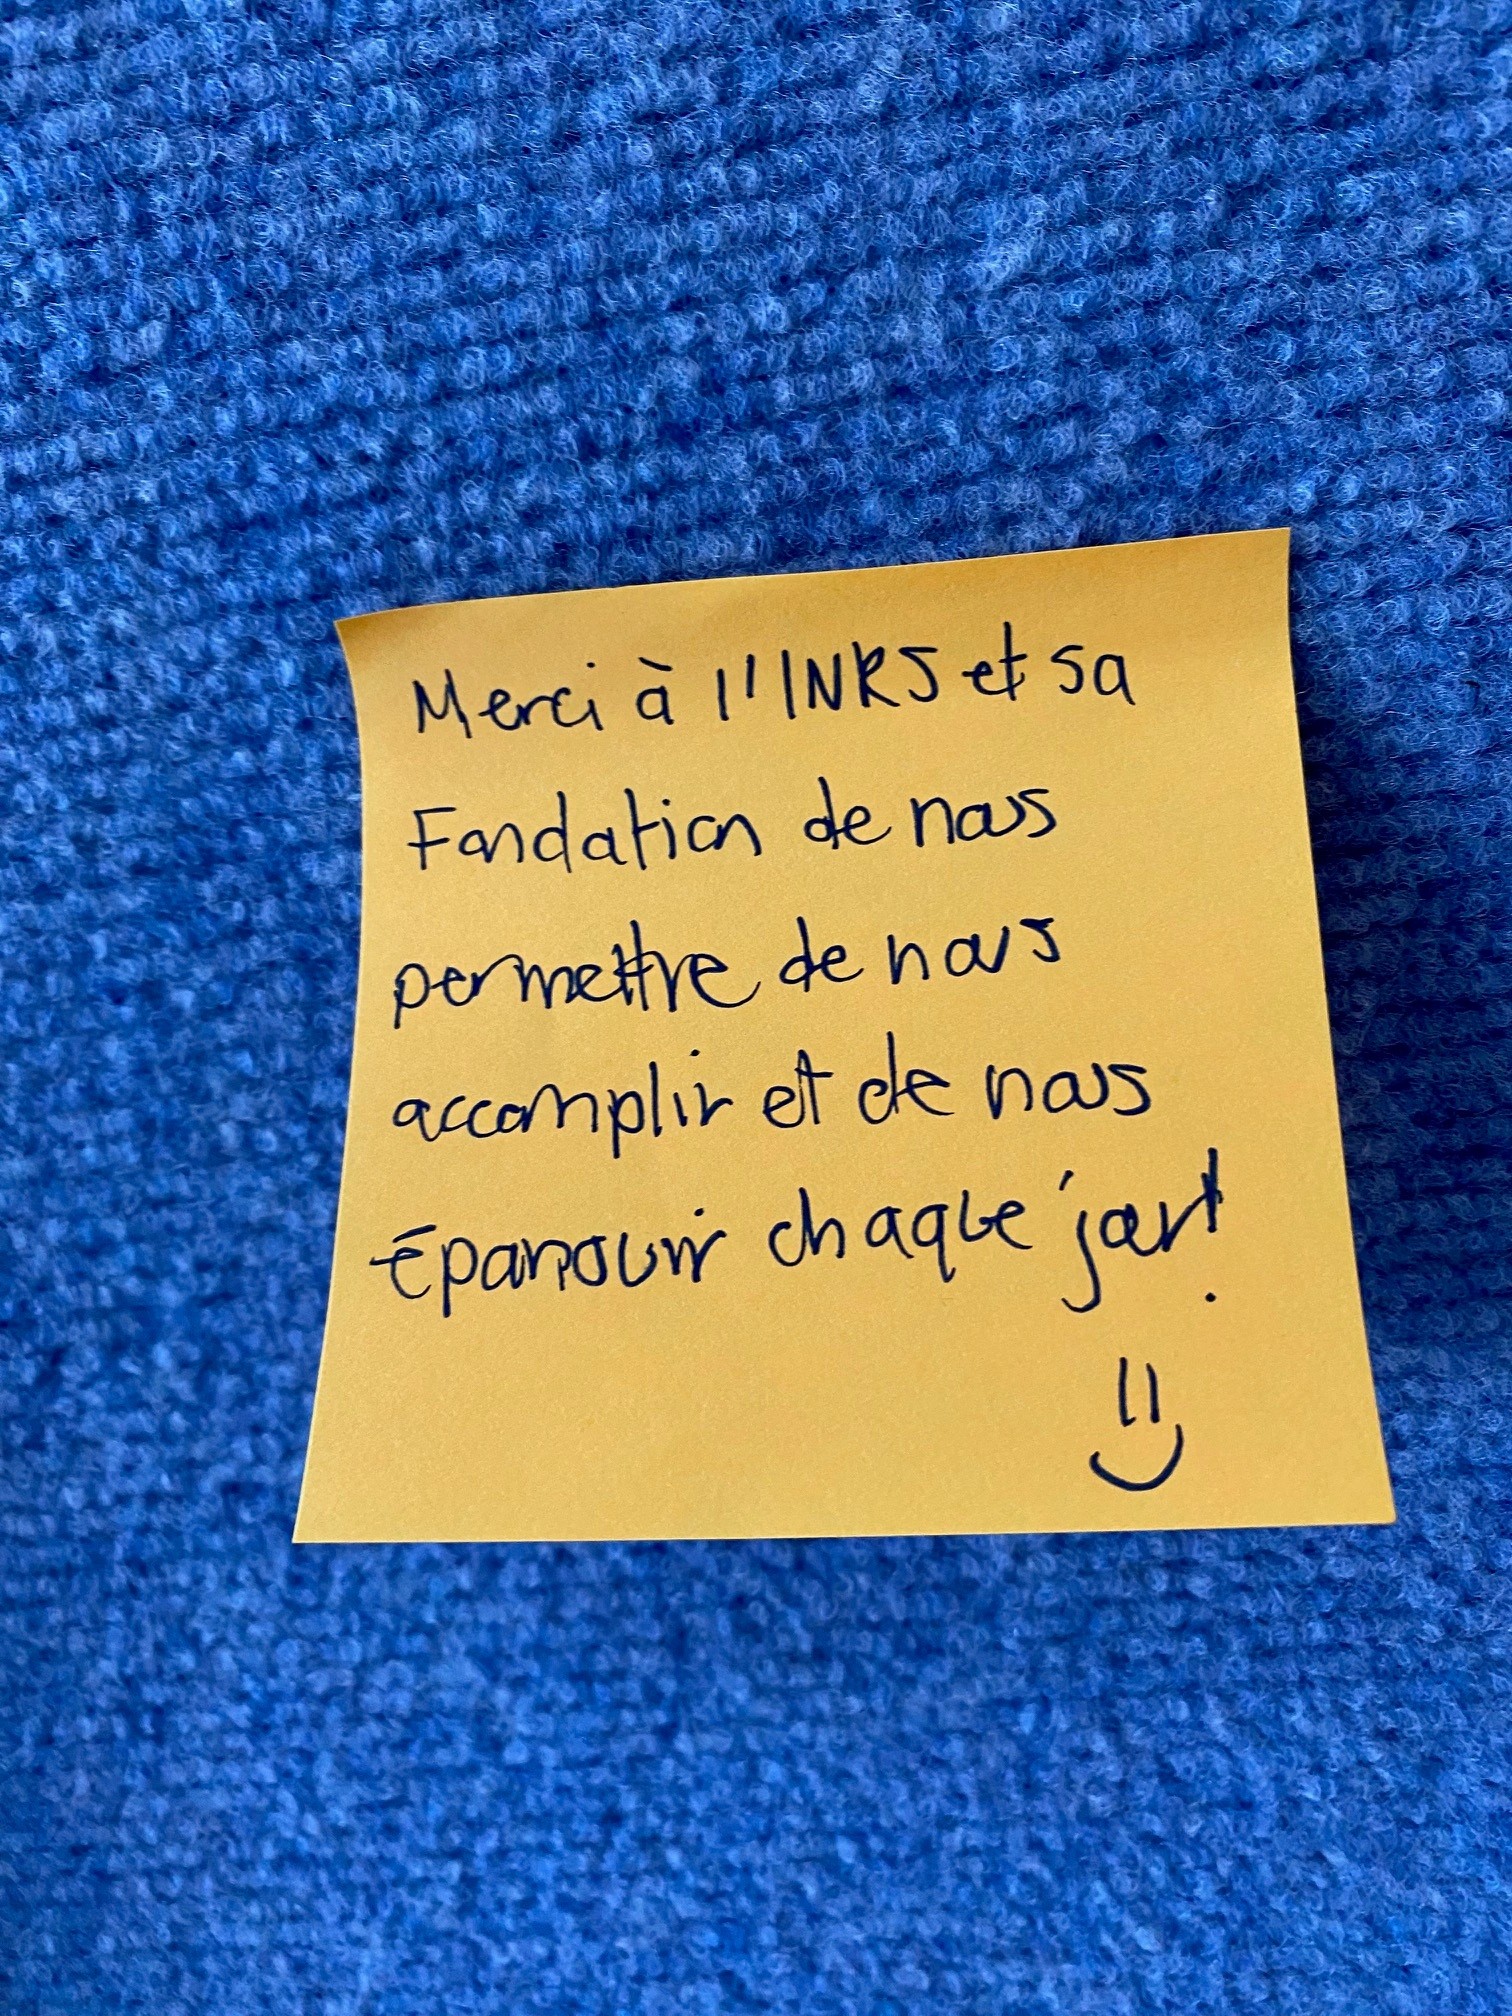 Merci à l'INRS et sa
Fondation de nous
permettre de nous
accomplir et de nous
épanouir chaque jour!